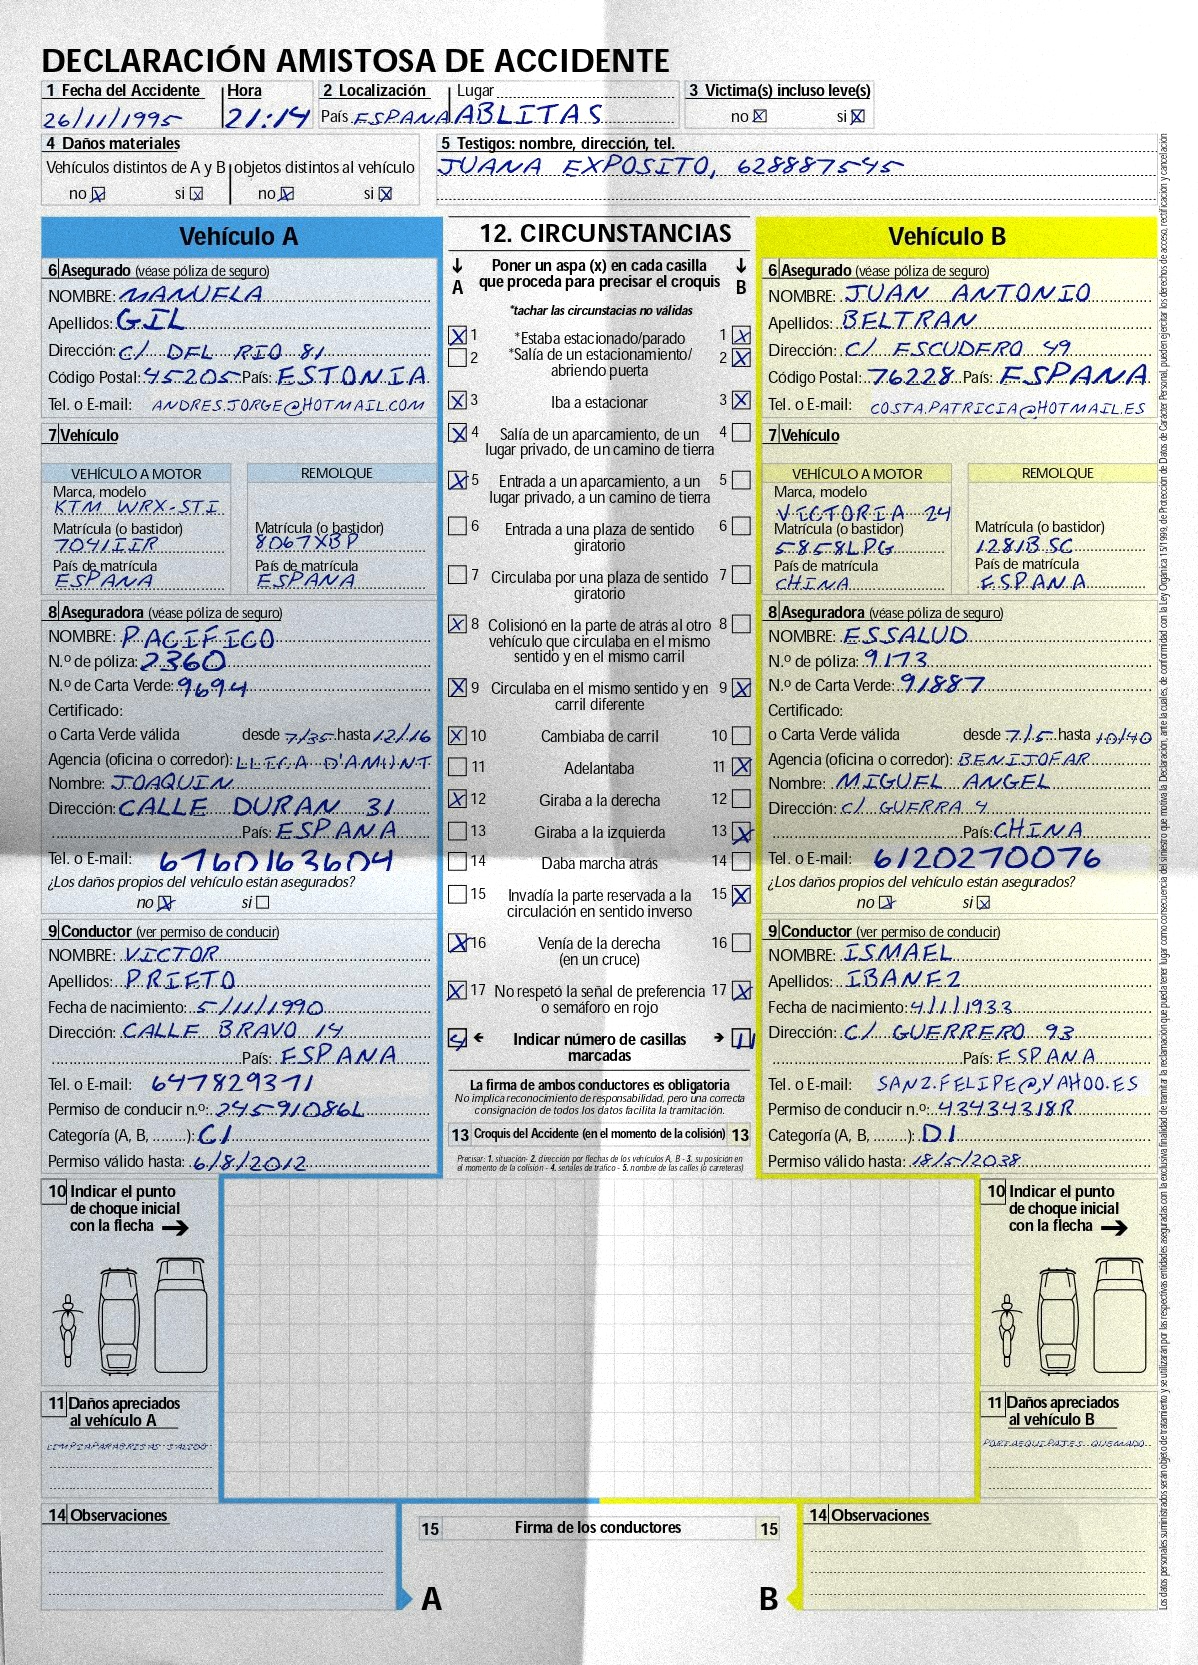 DECLARACIÓN AMISTOSA DE ACCIDENTE
1 Fecha del Accidente Hora 2 Localización Lugar 3 Victima(s) incluso leve(s)
26/11/1995 21:14 País ESPANA ABLITAS no X si X
4 Daños materiales 5 Testigos: nombre, dirección, tel.
Vehículos distintos de A y B objetos distintos al vehículo JUANA EXPOSITO, 628887545
no X si X no X si X
Vehículo A
6 Asegurado (véase póliza de seguro)
NOMBRE: MANUELA
Apellidos: GIL
Dirección: C/ DEL RIO 81
Código Postal: 45205 País: ESTONIA
Tel. o E-mail: ANDRES.JORGE@HOTMAIL.COM
7 Vehículo
VEHÍCULO A MOTOR REMOLQUE
Marca, modelo
KTM WRX-STI
Matrícula (o bastidor) Matrícula (o bastidor)
7041IIR 8067XBP
País de matrícula País de matrícula
ESPANA ESPANA
8 Aseguradora (véase póliza de seguro)
NOMBRE: PACIFICO
N.º de póliza: 2360
N.º de Carta Verde: 9694
Certificado:
o Carta Verde válida desde 7/35 hasta 12/16
Agencia (oficina o corredor): LLICA D'AMUNT
Nombre: JOAQUIN
Dirección: CALLE DURAN 31
País: ESPANA
Tel. o E-mail: 6760163604
¿Los daños propios del vehículo están asegurados?
no X si
9 Conductor (ver permiso de conducir)
NOMBRE: VICTOR
Apellidos: PRIETO
Fecha de nacimiento: 5/11/1990
Dirección: CALLE BRAVO 14
País: ESPANA
Tel. o E-mail: 647829371
Permiso de conducir n.º: 24591086L
Categoría (A, B, ........): C1
Permiso válido hasta: 6/8/2012
12. CIRCUNSTANCIAS
A Poner un aspa (x) en cada casilla B
que proceda para precisar el croquis
*tachar las circunstacias no válidas
X 1 *Estaba estacionado/parado 1 X
2 *Salía de un estacionamiento/ 2 X
abriendo puerta
X 3 Iba a estacionar 3 X
X 4 Salía de un aparcamiento, de un 4
lugar privado, de un camino de tierra
X 5 Entrada a un aparcamiento, a un 5
lugar privado, a un camino de tierra
6 Entrada a una plaza de sentido 6
giratorio
7 Circulaba por una plaza de sentido 7
giratorio
X 8 Colisionó en la parte de atrás al otro 8
vehículo que circulaba en el mismo
sentido y en el mismo carril
X 9 Circulaba en el mismo sentido y en 9 X
carril diferente
X 10 Cambiaba de carril 10
11 Adelantaba 11 X
X 12 Giraba a la derecha 12
13 Giraba a la izquierda 13 X
14 Daba marcha atrás 14
15 Invadía la parte reservada a la 15 X
circulación en sentido inverso
X 16 Venía de la derecha 16
(en un cruce)
X 17 No respetó la señal de preferencia 17 X
o semáforo en rojo
Indicar número de casillas 11
marcadas
La firma de ambos conductores es obligatoria
No implica reconocimiento de responsabilidad, pero una correcta
consignación de todos los datos facilita la tramitación.
13 Croquis del Accidente (en el momento de la colisión) 13
Precisar: 1. situación- 2. dirección por flechas de los vehículos A, B - 3. su posición en
el momento de la colisión - 4. señales de tráfico - 5. nombre de las calles (o carreteras)
Vehículo B
6 Asegurado (véase póliza de seguro)
NOMBRE: JUAN ANTONIO
Apellidos: BELTRAN
Dirección: C/ ESCUDERO 49
Código Postal: 76228 País: ESPANA
Tel. o E-mail: COSTA.PATRICIA@HOTMAIL.ES
7 Vehículo
VEHÍCULO A MOTOR REMOLQUE
Marca, modelo
VICTORIA 24
Matrícula (o bastidor) Matrícula (o bastidor)
5858LPG 1281BSC
País de matrícula País de matrícula
CHINA ESPANA
8 Aseguradora (véase póliza de seguro)
NOMBRE: ESSALUD
N.º de póliza: 9173
N.º de Carta Verde: 91887
Certificado:
o Carta Verde válida desde 7/5 hasta 10/40
Agencia (oficina o corredor): BENIJOFAR
Nombre: MIGUEL ANGEL
Dirección: C/ GUERRA 4
País: CHINA
Tel. o E-mail: 6120270076
¿Los daños propios del vehículo están asegurados?
no X si X
9 Conductor (ver permiso de conducir)
NOMBRE: ISMAEL
Apellidos: IBANEZ
Fecha de nacimiento: 4/1/1933
Dirección: C/ GUERRERO 93
País: ESPANA
Tel. o E-mail: SANZ.FELIPE@YAHOO.ES
Permiso de conducir n.º: 43434318R
Categoría (A, B, ........): D1
Permiso válido hasta: 18/5/2038
10 Indicar el punto
de choque inicial
con la flecha
11 Daños apreciados
al vehículo A
LIMPIAPARABRISAS SALIDO
10 Indicar el punto
de choque inicial
con la flecha
11 Daños apreciados
al vehículo B
PORTAEQUIPAJES QUEMADO
14 Observaciones
15 Firma de los conductores 15
A B
14 Observaciones
Los datos personales suministrados serán objeto de tratamiento y se utilizarán por las respectivas entidades aseguradas con la exclusiva finalidad de tramitar la reclamación que pueda tener lugar como consecuencia del siniestro que motiva la Declaración, ante la cuales, de conformidad con la Ley Orgánica 15/1999, de Protección de Datos de Carácter Personal, pueden ejercitar los derechos de acceso, rectificación y cancelación